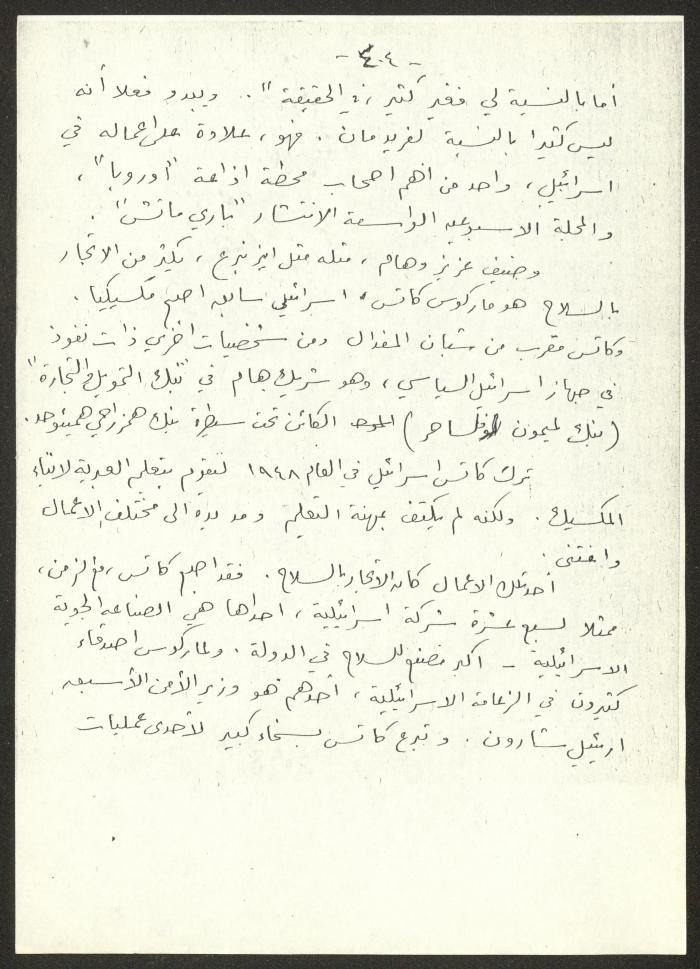 - ٤٠٤ -
أما بالنسبة لي فقير كثير، في الحقيقة". ويبدو فعلا أنه
ليس كثيرا بالنسبة لفريدمان. فهو، علاوة على أعماله في
اسرائيل، واحد من أهم اصحاب محطة اذاعة "أوروبا"،
والمجلة الاسبوعيه الواسعة الانتشار "باري ماتش".
وضيف عزيز وهام، مثله مثل ايزنبرغ، يكثر من الاتجار
بالسلاح هو ماركوس كاتس، اسرائيلي سابق اصبح مكسيكيا.
وكاتس مقرب من شبان المفدال ومن شخصيات اخرى ذات نفوذ
في جهاز اسرائيل السياسي، وهو شريك هام في "بنك التمويل والتجارة"
(بنك لميمون ولسحر) الكائن تحت سيطرة بنك همزراحي همئوحد.
ترك كاتس اسرائيل في العام ١٩٤٨ ليقوم بتعليم العبرية لأبناء
المكسيك. ولكنه لم يكتف بمهنة التعليم ومد يده الى مختلف الاعمال
واغتنى.
أحد تلك الاعمال كان الاتجار بالسلاح. فقد اصبح كاتس، مع الزمن،
ممثلا لسبع عشرة شركة اسرائيلية، احداها هي الصناعه الجوية
الاسرائيلية - أكبر مصنع للسلاح في الدولة. ولماركوس اصدقاء
كثيرون في الزعامة الاسرائيلية، أحدهم هو وزير الأمن الأسبق
اريئيل شارون. وتبرع كاتس بسخاء كبير لأحدى عمليات